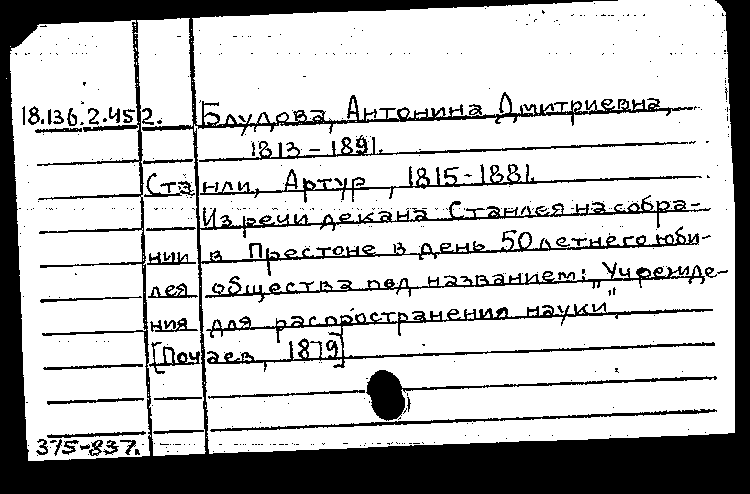 18.136.2.452. Блудова, Антонина Дмитриевна,
1813 – 1891.
Станли, Артур, 1815-1881.
Из речи декана Станлея на собра-
нии в Престоне в день 50 летнего юби-
лея общества под названием: „Учрежде-
ния для распространения науки".
[Почаев, 1879]
375-837.